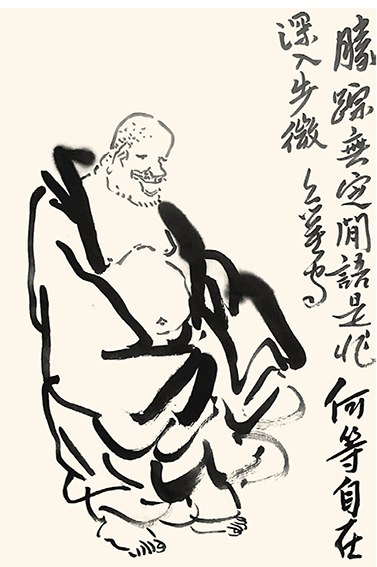 朦踪無定閒語是非何等自在
深入步微